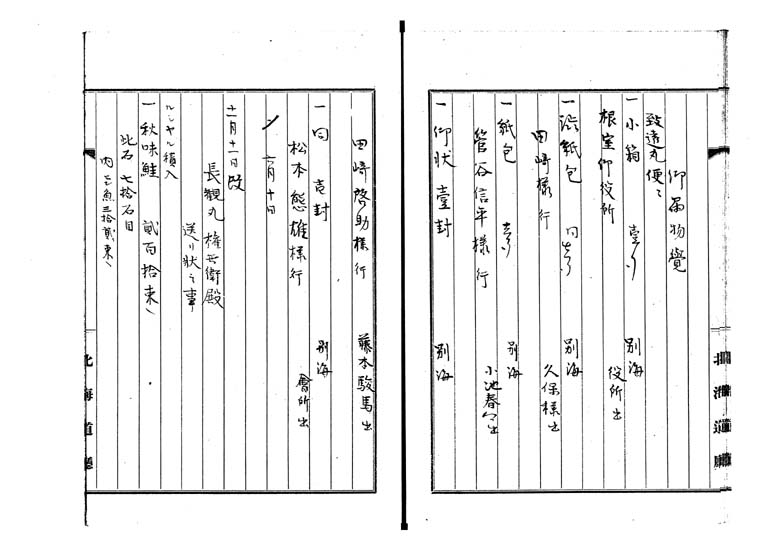 御届物覚
致遠丸便ニ
一小箱 壹ツ 別海
根室御役所 役所出
一渋紙包 同壹ツ 別海
田崎様行 久保様出
一紙包 壹ツ 別海
菅谷信平様行 小池春
一御状壹封 別海
田崎啓助様行 藤本駿馬出
一同 壹封 別海
松本熊雄様行 會所出
〆 十日
十一月十一日改
長観丸権兵衛殿
送リ状之事
ルシヤル積入
一秋味鮭 貳百拾束ヽ
此石 七拾石目
内 魚三拾貳束ヽ
北海道廳
北海道廳